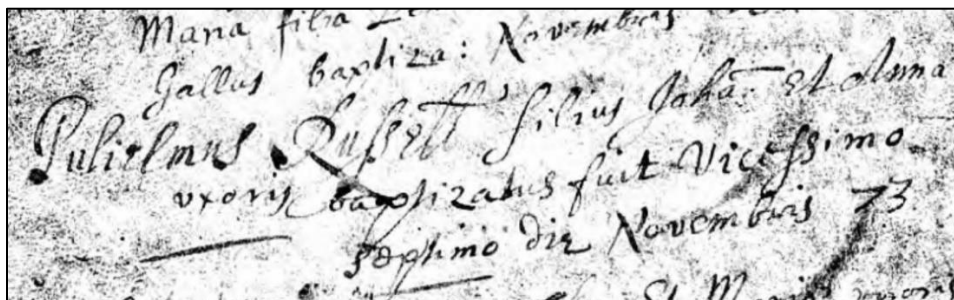 Maria filia
Gallus baptiza: Novembris
Gulielmus Russell filius Joha: Et Anna
uxoris baptizatus fuit Vicessimo
septimo die Novembris 73.
Et